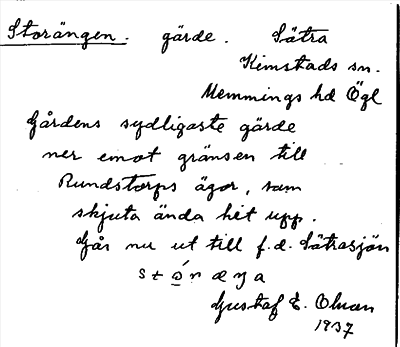 Storängen. gärde. Sätra
Kimstads sn.
Memmings hd Ögl
Gårdens sydligaste gärde
ner emot gränsen till
Rundstorps ägor, som
skjuta ända hit upp.
Går nu ut till f.d. Sätrasjön
Gustaf E. Olman
1937